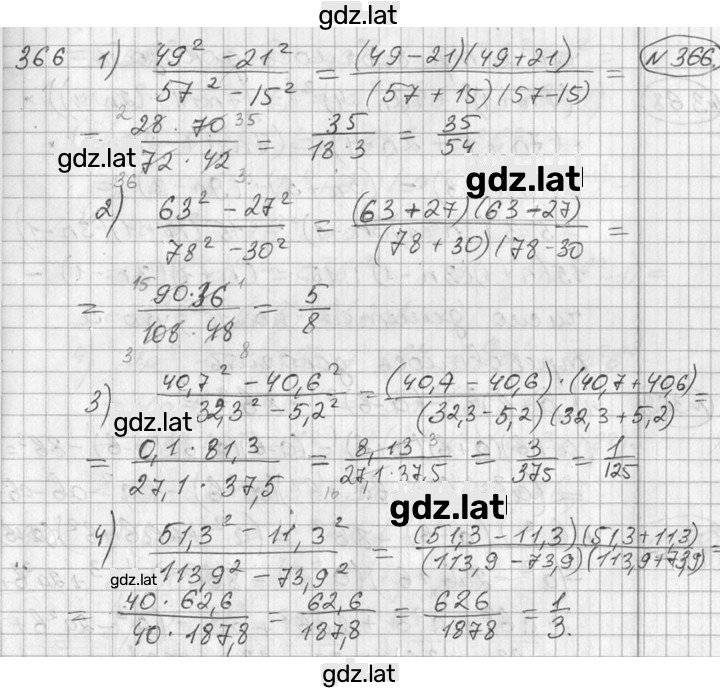 gdz.lat
366 1) (49² - 21²)/(57² - 15²) = ((49-21)(49+21))/((57+15)(57-15)) = № 366.
= (28 · 70)/(72 · 42) = 35/(18·3) = 35/54
2 35
36 3
gdz.lat
gdz.lat
2) (63² - 27²)/(78² - 30²) = ((63+27)(63-27))/((78+30)(78-30 =
= (90·36)/(108·48) = 5/8
15 1
3 8
3) (40,7² - 40,6²)/(32,3² - 5,2²) = ((40,7-40,6)·(40,7+40,6))/((32,3-5,2)(32,3+5,2)) =
gdz.lat
= (0,1·81,3)/(27,1·37,5) = (8,13 3)/(27,1·37,5) = 3/375 = 1/125
gdz.lat
4) (51,3² - 11,3²)/(113,9² - 73,9²) = ((51,3-11,3)(51,3+11,3))/((113,9-73,9)(113,9+73,9)) =
gdz.lat
= (40·62,6)/(40·187,8) = 62,6/187,8 = 626/1878 = 1/3.
gdz.lat